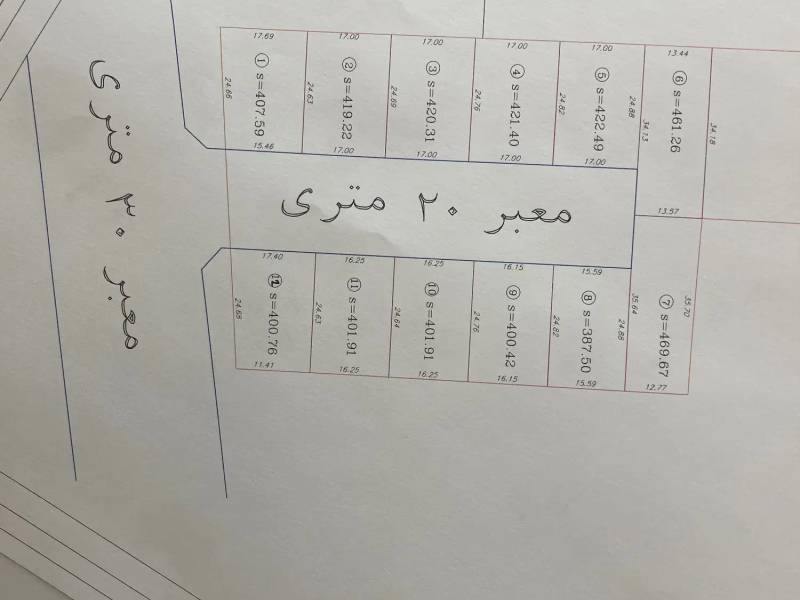 17.69
17.00
17.00
17.00
17.00
13.44
① s=407.59
② s=419.22
③ s=420.31
④ s=421.40
⑤ s=422.49
⑥ s=461.26
24.66
24.63
24.69
24.76
24.82
24.88
34.13
34.18
15.46
17.00
17.00
17.00
17.00
13.57
معبر ۲۰ متری
معبر ۳۰ متری
17.40
16.25
16.25
16.15
15.59
⑫ s=400.76
⑪ s=401.91
⑩ s=401.91
⑨ s=400.42
⑧ s=387.50
⑦ s=469.67
24.65
24.63
24.64
24.76
24.82
24.88
35.64
35.70
11.41
16.25
16.25
16.15
15.59
12.77